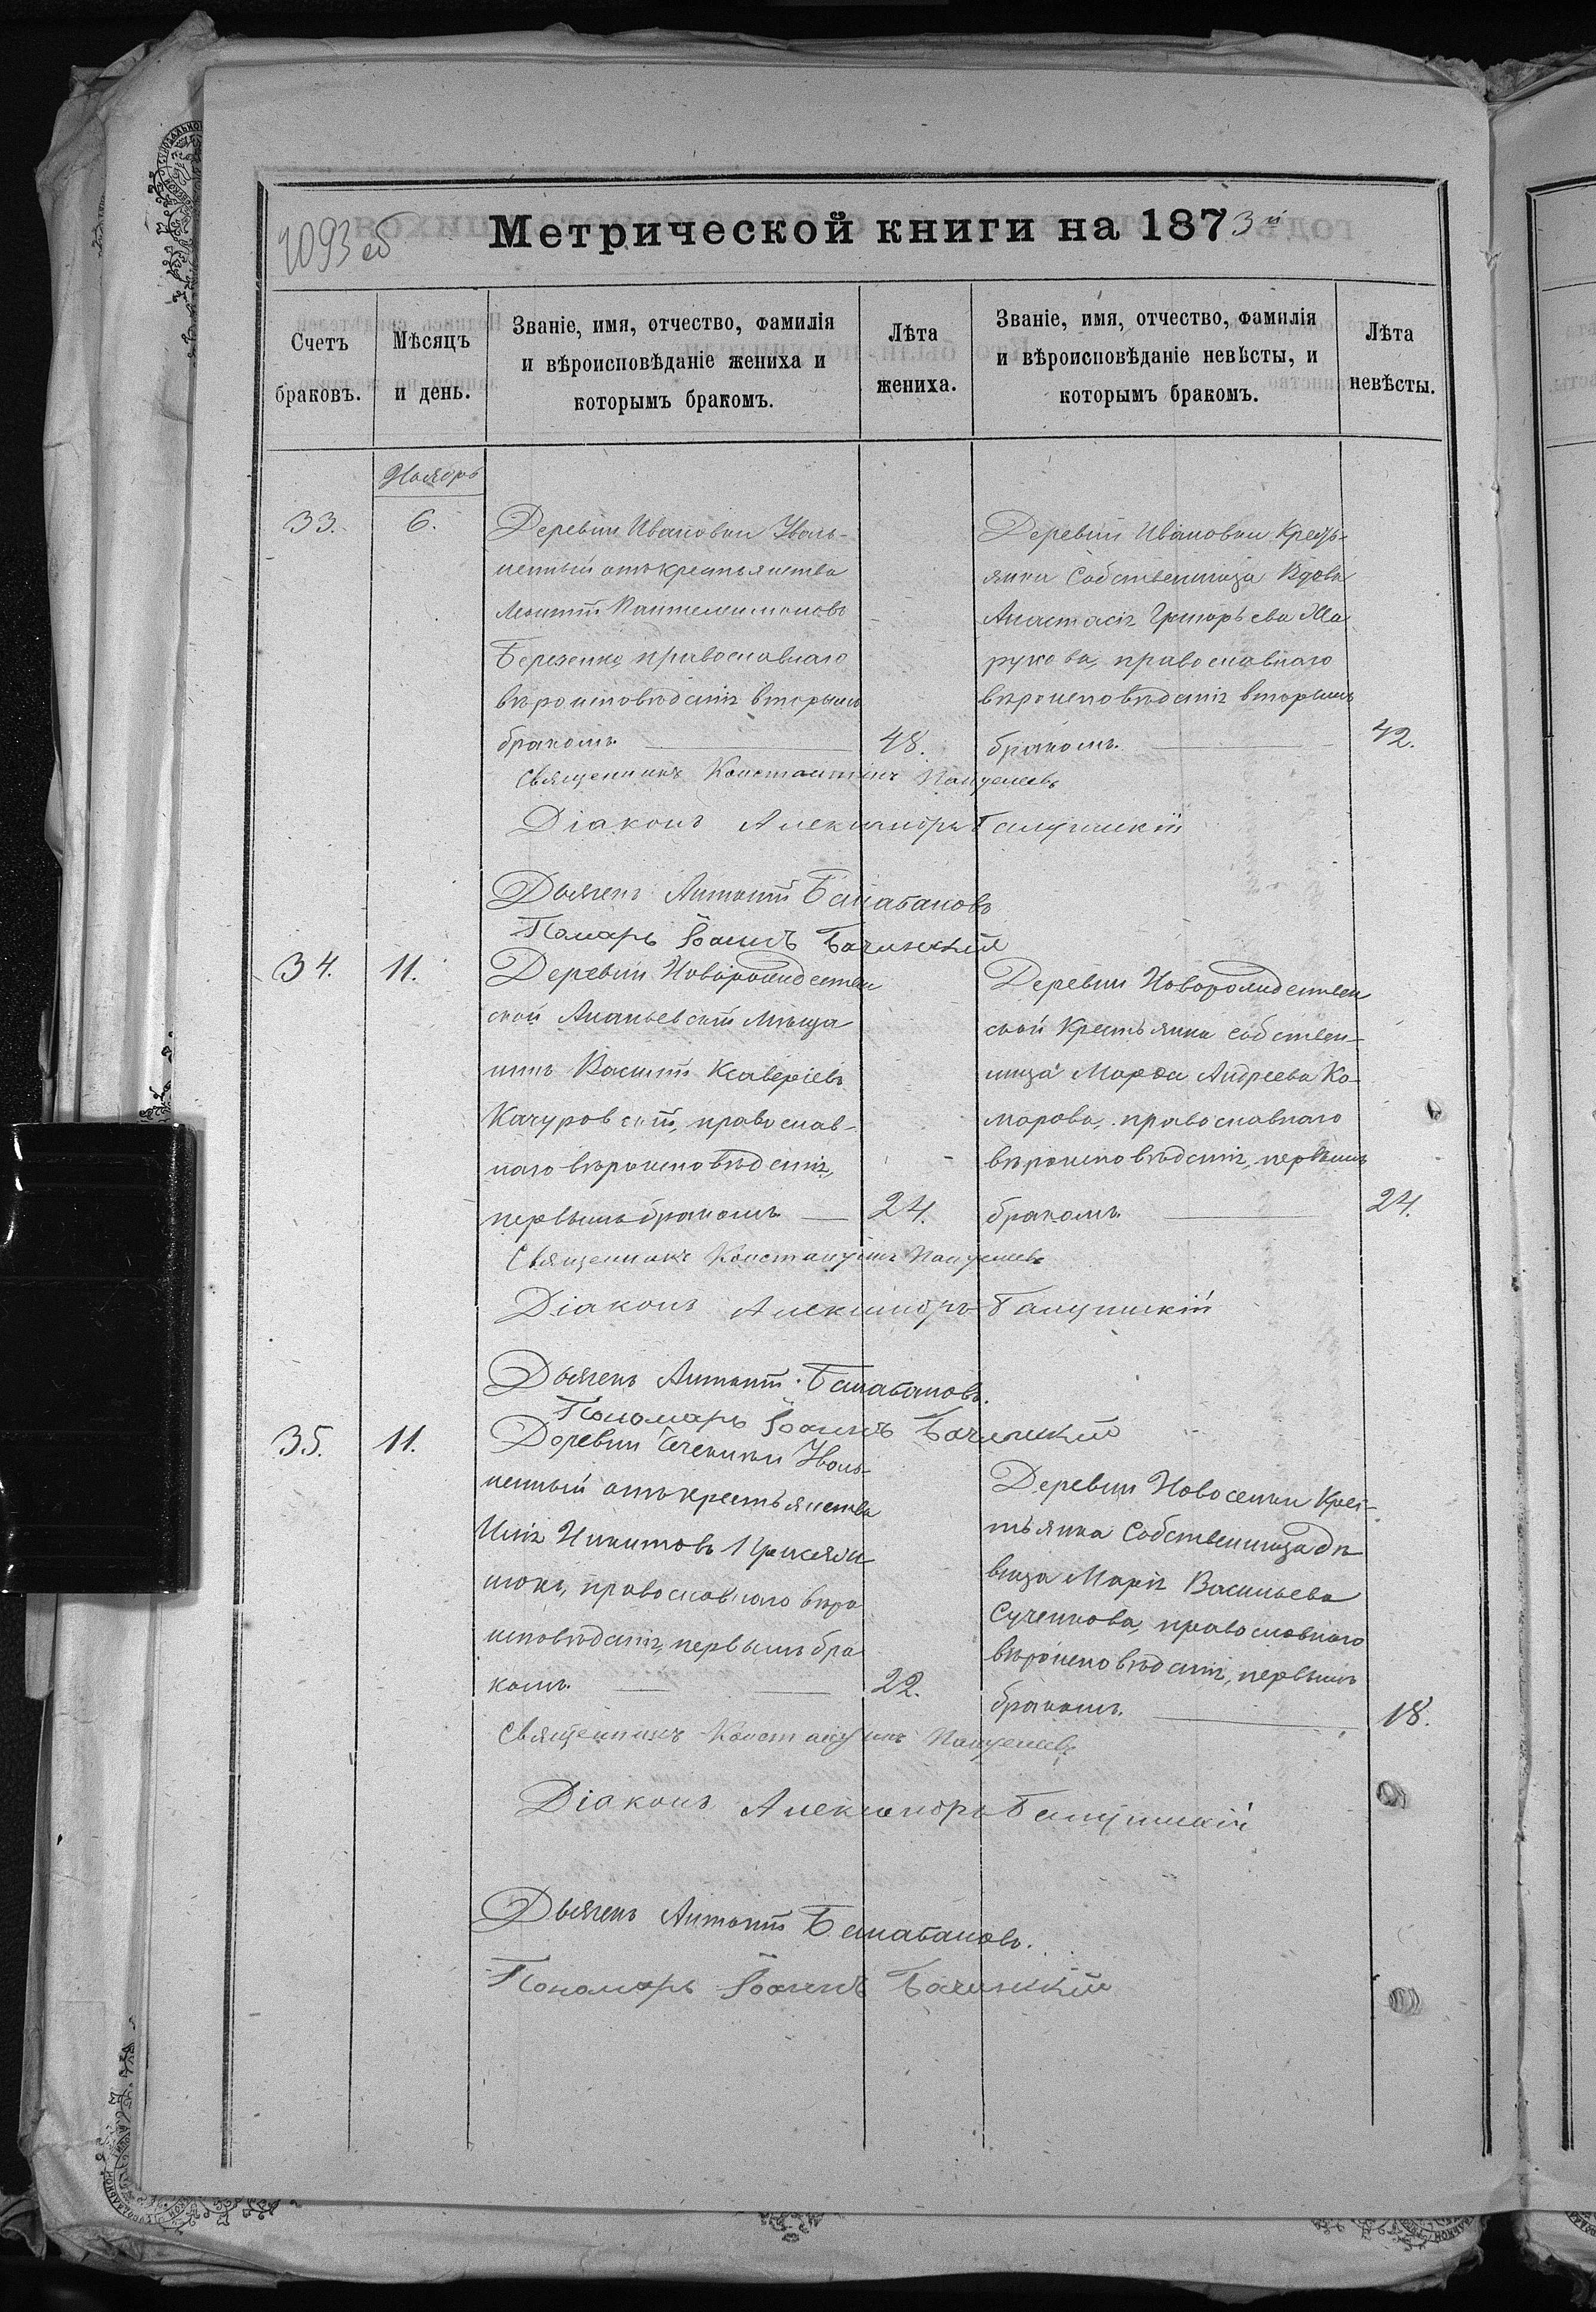 1093 об
Метрической книги на 1873й
Счетъ браковъ.
Мѣсяцъ и день.
Званіе, имя, отчество, фамилія
и вѣроисповѣданіе жениха и
которымъ бракомъ.
Лѣта жениха.
Званіе, имя, отчество, фамилія
и вѣроисповѣданіе невѣсты, и
которымъ бракомъ.
Лѣта невѣсты.
Ноябрь
33.
6.
Деревни Ивановки Уволь-
ненный отъ крестьянства
Леонтій Пантелеимоновъ
Березенко, православнаго
вѣроисповѣданія вторымъ
бракомъ.
48.
Деревни Ивановки Кресть-
янка Собственница Вдова
Анастасія Григорьева Ма
рукова, православнаго
вѣроисповѣданія вторымъ
бракомъ.
42.
Священникъ Константинъ
Діаконъ Александръ
Дьячекъ Антоній Балабановъ
Помарь Іоаннъ Бачинскій
34.
11.
Деревни Новорождествен
ской Ананьевскій Мѣща
нинъ Василій Ксаверіевъ
Качуровскій, православ-
наго вѣроисповѣданія,
первымъ бракомъ
24.
Деревни Новорождествен
ской Крестьянка собствен-
ница Марфа Андреева Ко-
марова, православнаго
вѣроисповѣданія, первымъ
бракомъ.
24.
Священникъ Константинъ
Діаконъ Александръ
Дьячекъ Антоній Балабановъ.
Пономарь Іоаннъ Бачинскій
35.
11.
Деревни Уволь-
ненный отъ крестьянства
Илія Никитовъ
православнаго вѣро
исповѣданія, первымъ бра
комъ.
22.
Деревни Новоселки Крес-
тьянка Собственница дѣ
вица Марія Васильева
Сученкова, православнаго
вѣроисповѣданія, первымъ
бракомъ.
18.
Священникъ Константинъ
Діаконъ Александръ
Дьячекъ Антоній Балабановъ.
Пономарь Іоаннъ Бачинскій